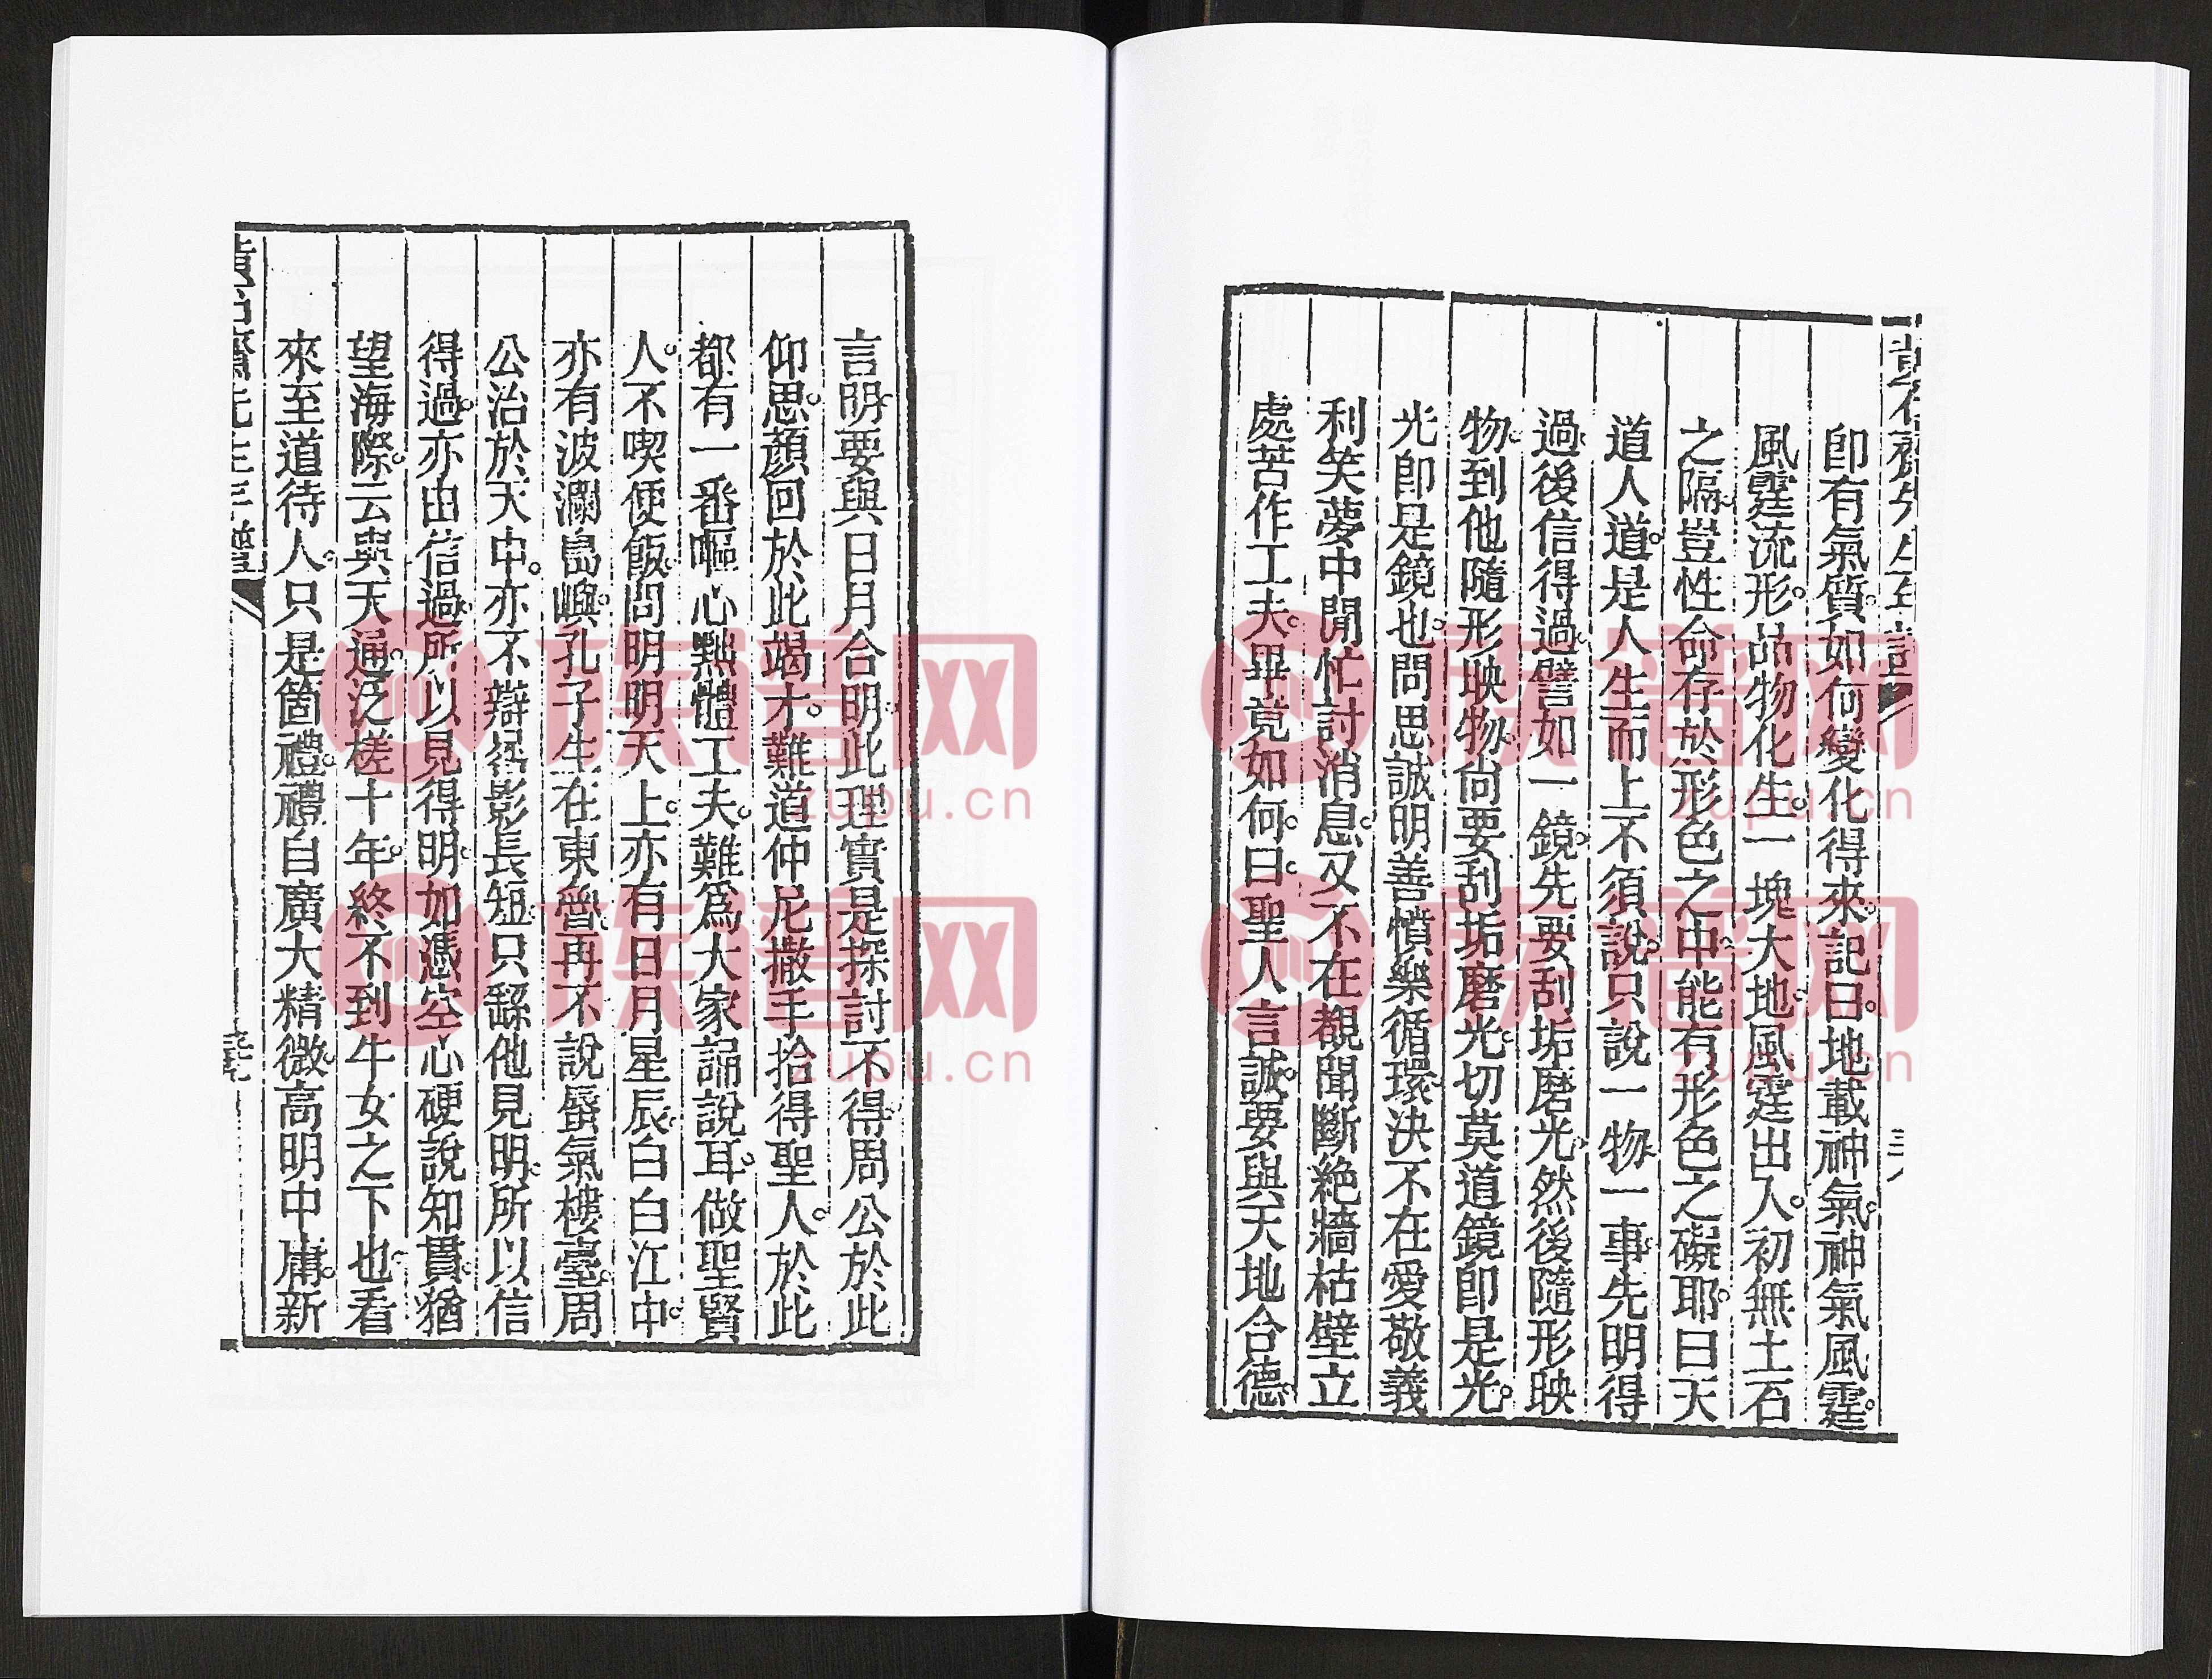 即有氣質如何變化得來記曰地載神氣神氣風霆
風霆流形品物化生一塊大地風霆出入初無土石
之隔豈性命存於形色之中能有形色之礙耶曰天
道人道是人生而上不須說只說一物一事先明得
過後信得過譬如一鏡先要刮垢磨光然後隨形映
物到他隨形映物尙要刮垢磨光切莫道鏡即是光
光即是鏡也問思誠明善憤樂循環決不在愛敬義
利笑夢中閒忙討消息又不在覩聞斷絶牆枯壁立
處苦作工夫畢竟如何曰聖人言誠要與天地合德
言明要與日月合明此理實是探討不得周公於此
仰思顏回於此竭才難道仲尼撒手拾得聖人於此
都有一番嘔心黜體工夫難爲大家誦說耳做聖賢
人不喫便飯問明明天上亦有日月星辰白白江中
亦有波瀾島嶼孔子生在東魯再不說蜃氣樓臺周
公治於天中亦不辯晷影長短只繇他見明所以信
得過亦由信過所以見得明如憑空心硬說知貫猶
望海際云與天通泛槎十年終不到牛女之下也看
來至道待人只是箇禮禮自廣大精微高明中庸新
族谱网
zupu.cn
族谱网
zupu.cn
族谱网
zupu.cn
族谱网
zupu.cn